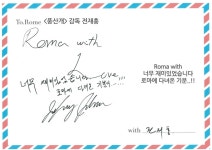 To.Rome <풍산개> 감독 전재홍
Roma with
너무 재미있었습니다
로마에 다녀온 기분..!!
Roma with
너무 재미있었습니다
로마에 다녀온 기분..!!
with 전재홍